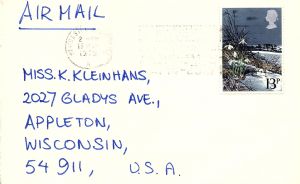 AIR MAIL
13P
MISS. K. KLEINHANS,
2027 GLADYS AVE.,
APPLETON,
WISCONSIN,
54911, U.S.A.